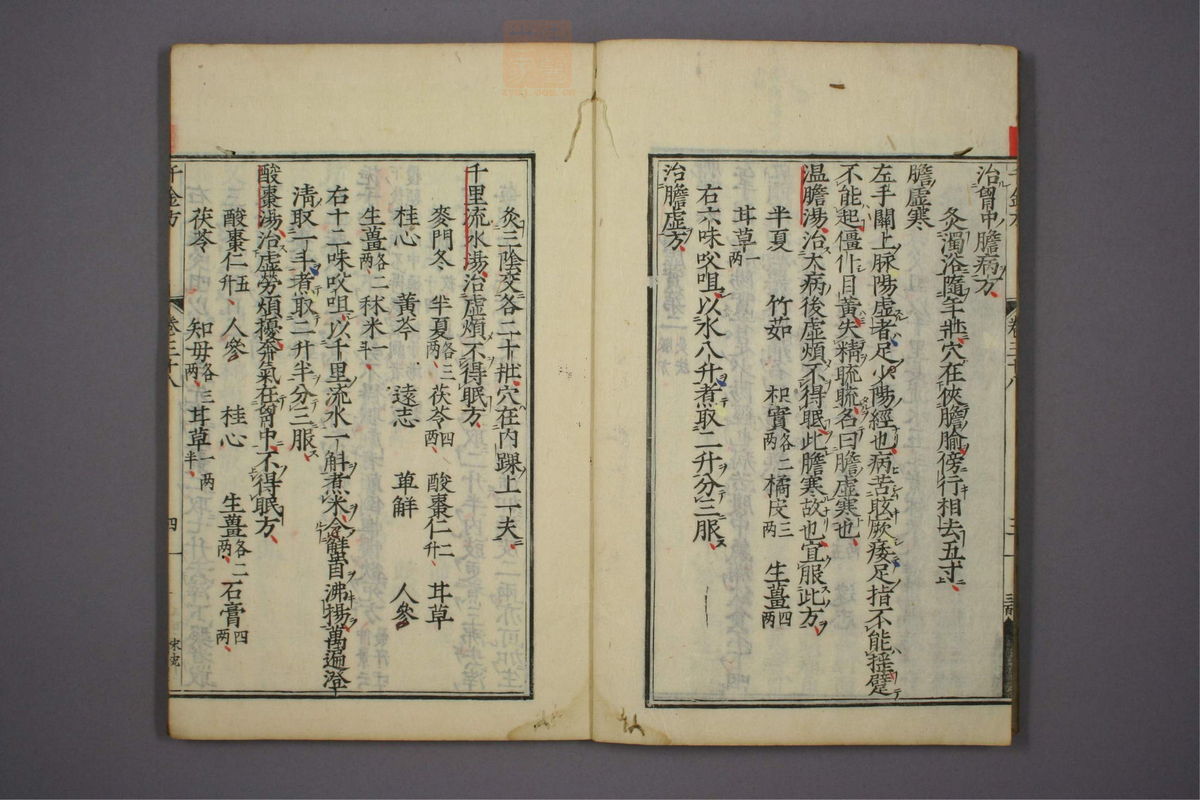 治胷中膽病方
灸濁浴隨年壯穴在俠膽腧傍行相去五寸
膽虛寒
左手關上脉陽虛者足少陽經也病苦眩厥痿足指不能搖躄
不能起僵仆目黃失精䀮䀮名曰膽虛寒也
温膽湯治大病後虛煩不得眠此膽寒故也宜服此方
半夏 竹茹 枳實各二兩 橘皮三兩 生薑四兩
甘草一兩
右六味㕮咀以水八升煮取二升分三服
治膽虛方
千金方 卷三十八 三
灸三陰交各二十壯穴在内踝上一夫
千里流水湯治虛煩不得眠方
麥門冬 半夏各三兩 茯苓四兩 酸棗仁二升 甘草
桂心 黃芩 遠志 萆薢 人參
生薑各二兩 秫米一斗
右十二味㕮咀以千里流水一斛煮米令蟹目沸揚萬遍澄
淸取一斗煮取二升半分三服
酸棗湯治虛勞煩擾奔氣在胷中不得眠方
酸棗仁五升 人參 桂心 生薑各二兩 石膏四兩
茯苓 知母各三兩 甘草一兩半
千金方 卷三十八 四